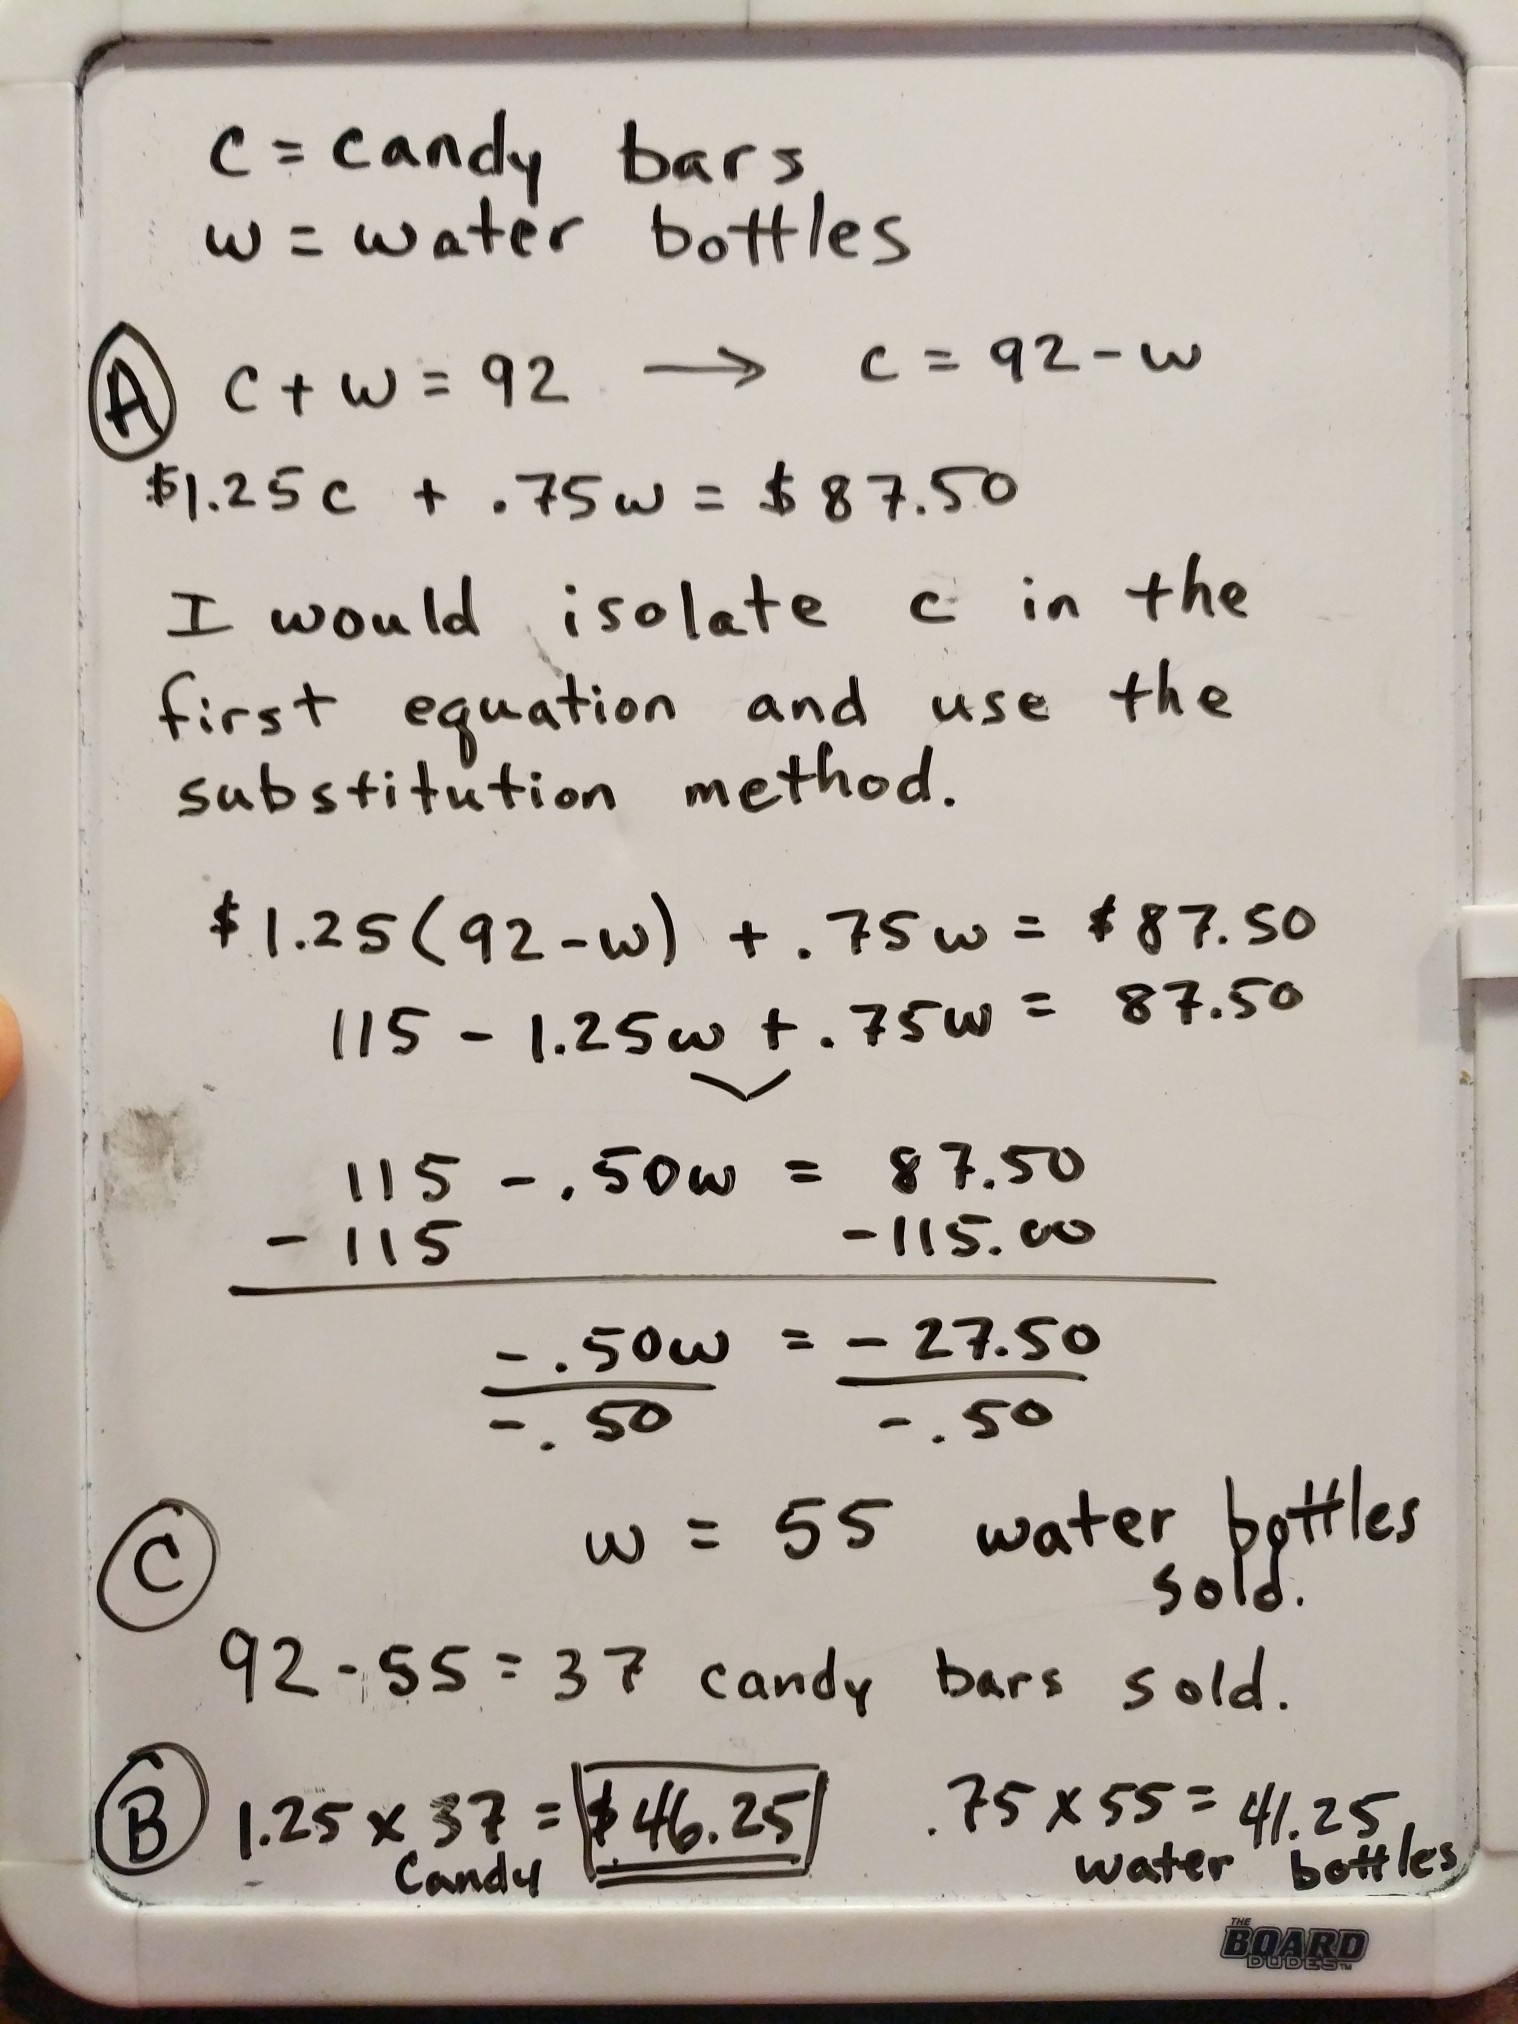 c = candy bars
w = water bottles
A c + w = 92 → c = 92 - w
$1.25c + .75w = $87.50
I would isolate c in the
first equation and use the
substitution method.
$1.25(92-w) + .75w = $87.50
115 - 1.25w + .75w = 87.50
115 - .50w = 87.50
- 115 -115.00
-.50w = -27.50
-.50 -.50
C w = 55 water bottles
sold.
92 - 55 = 37 candy bars sold.
B 1.25 x 37 = $46.25 .75 x 55 = 41.25
Candy water bottles
THE
BOARD
DUDES™